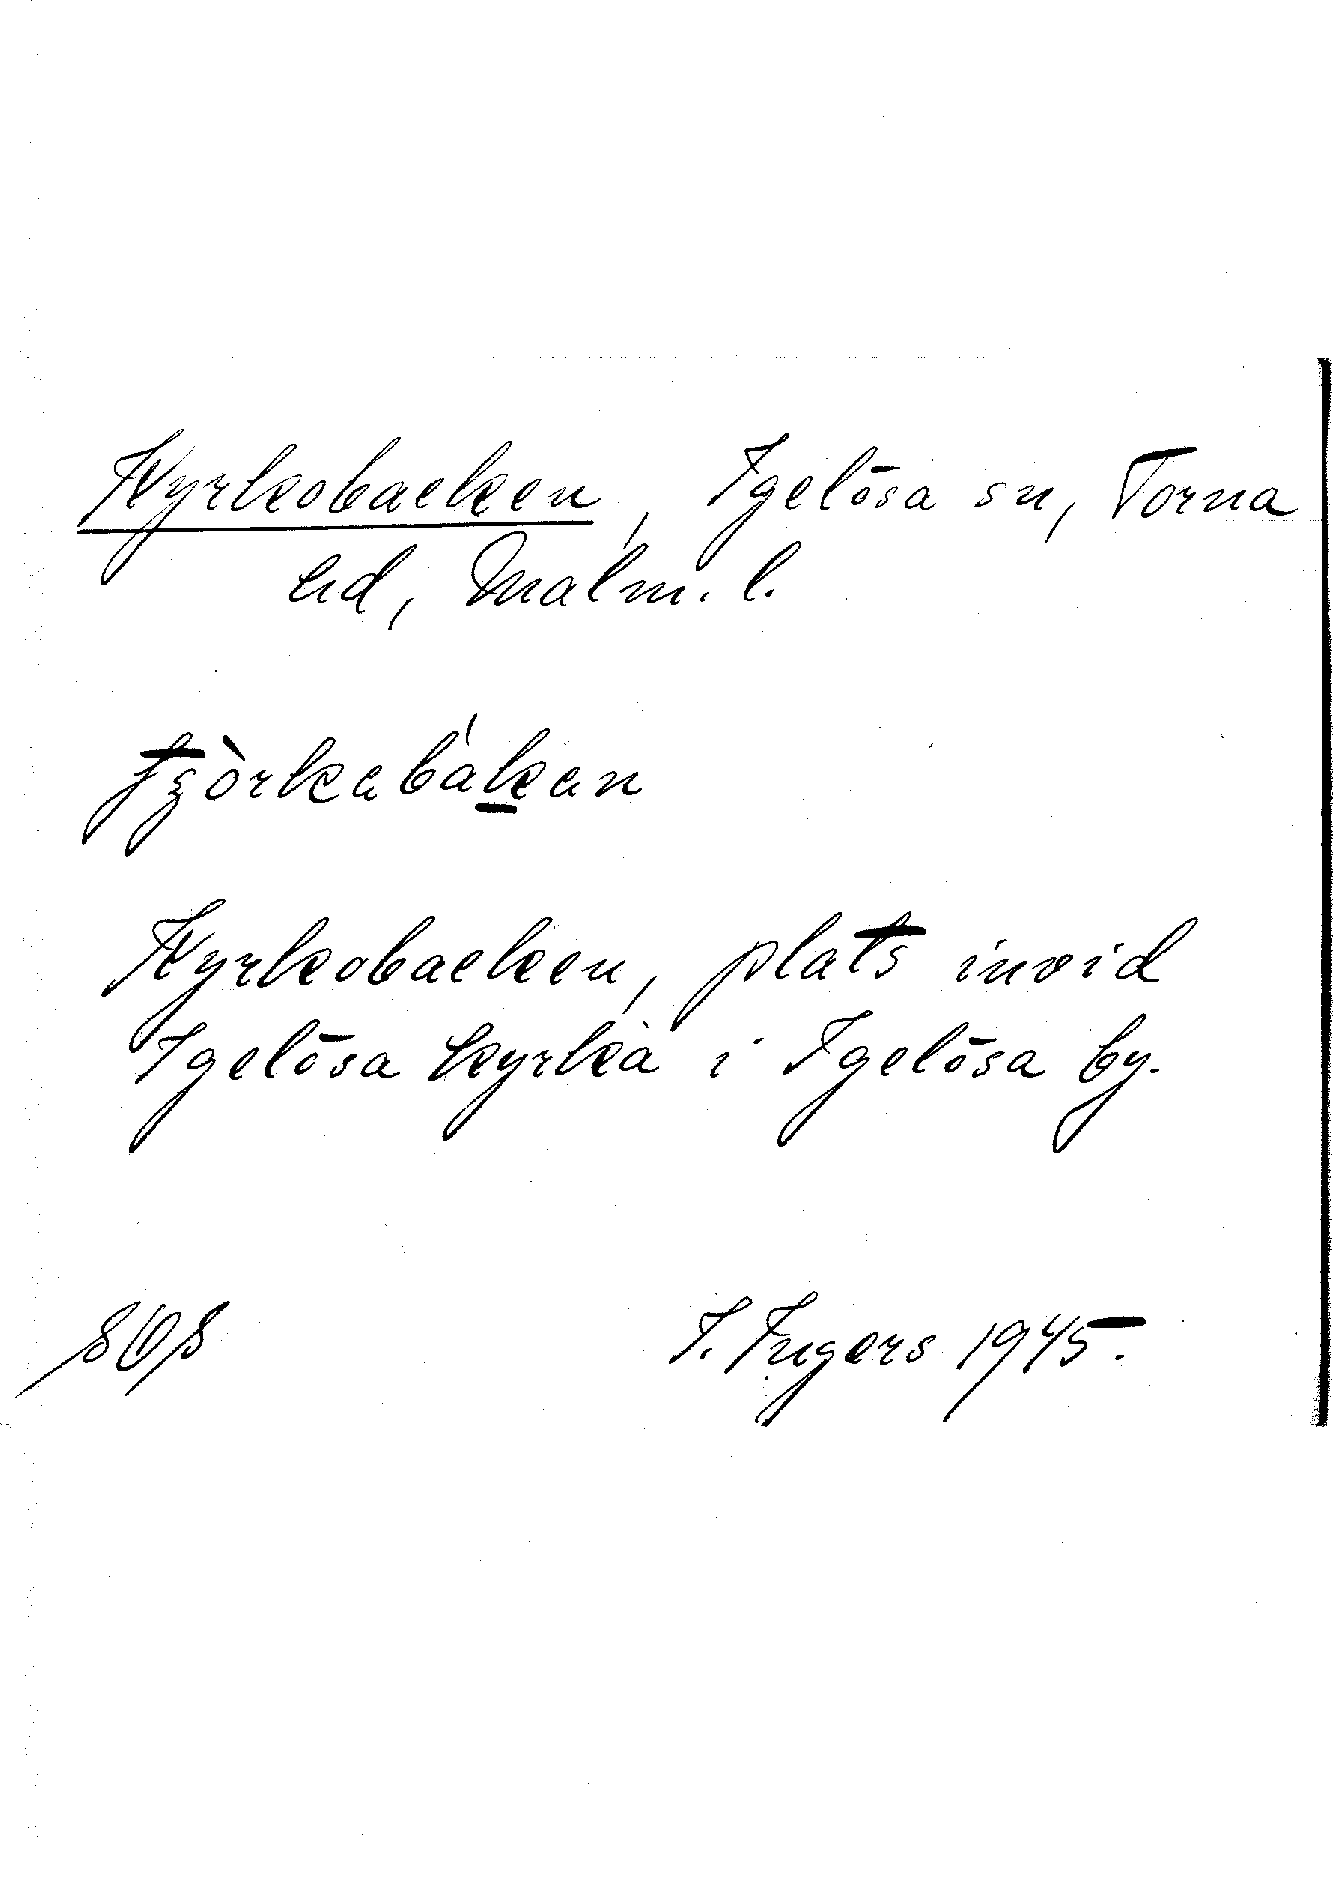 Kyrkobacken, Igelösa sn, Torna
hd, Malm. l.
Kyrkobacken, plats invid
Igelösa kyrka i Igelösa by.
I. Ingers 1945.